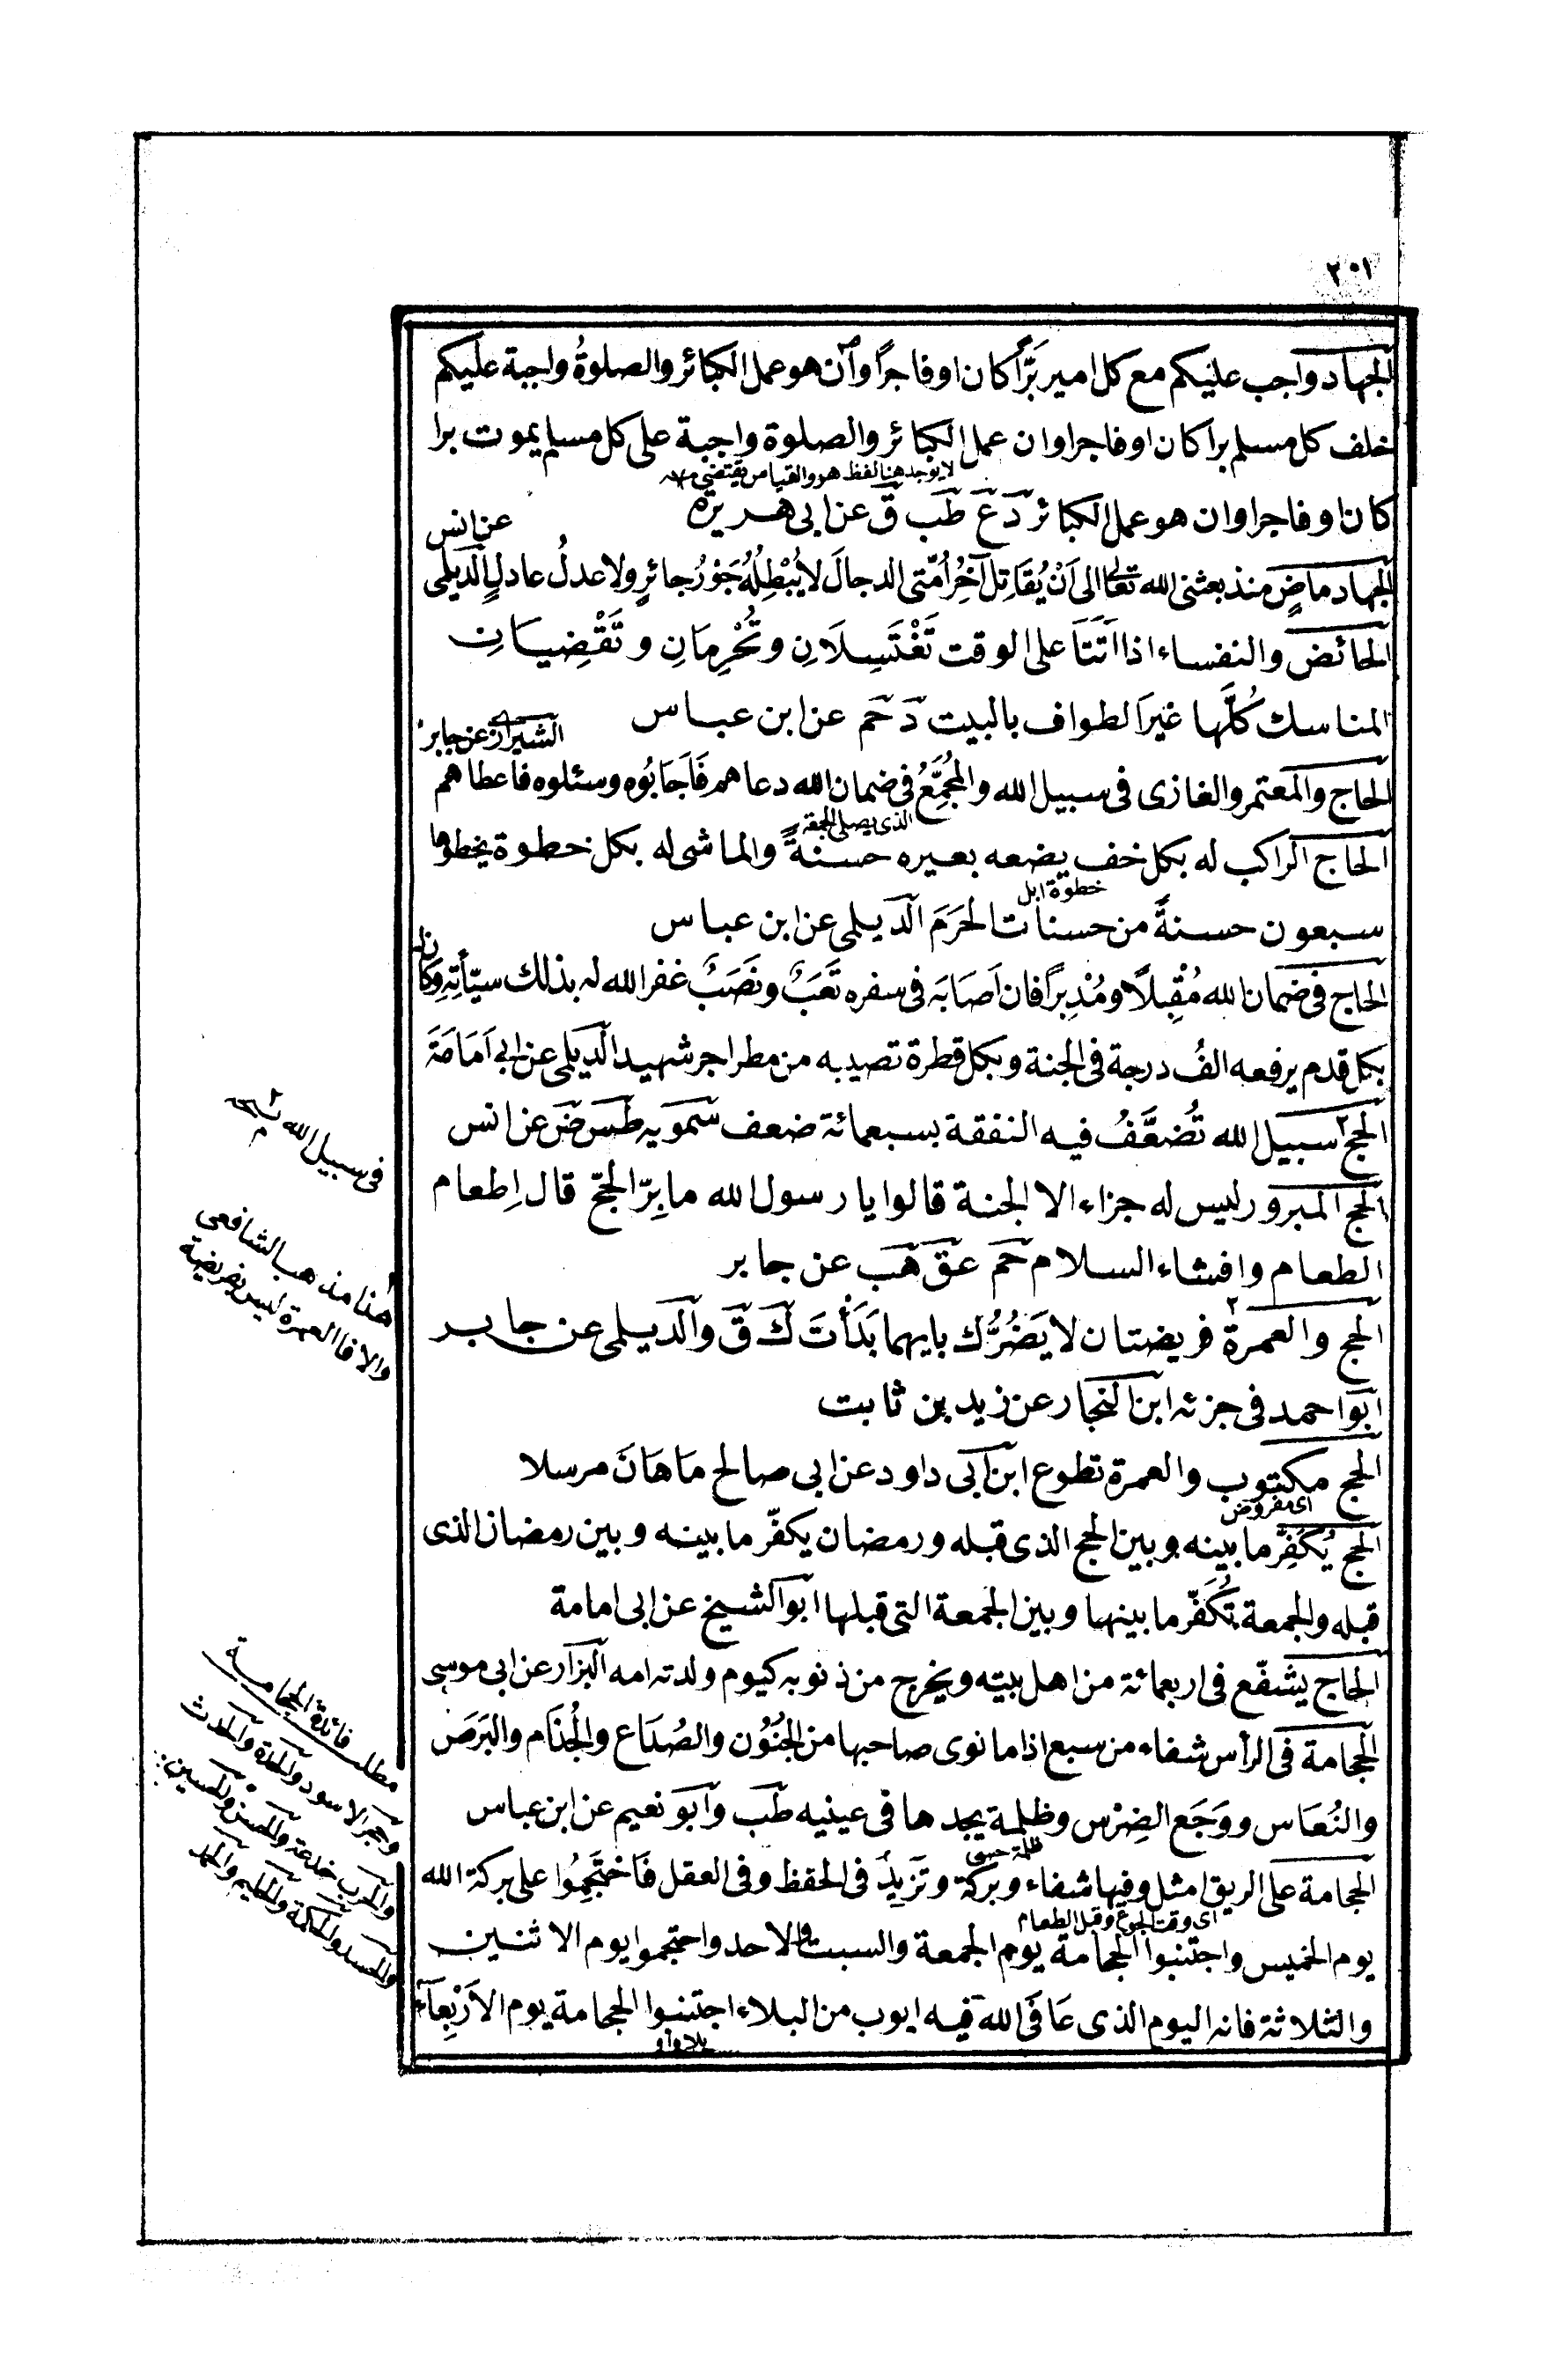 ٢٠١
الجهاد واجب عليكم مع كل امير بَرًّا كان او فاجرًا وان هو عمل الكبائر والصلوةُ واجبة عليكم
خلف كل مسلم برا كان او فاجرا وان عمل الكبائر والصلوة واجبة على كل مسلم يموت برا
لا يوجد هنا لفظ هو والقياس يقتضي
كان او فاجرا وان هو عمل الكبائر دَ عَ طَب قَ عن ابى هريرة
عن انس
الجهاد ماضٍ منذ بعثنى الله تعالى الى اَنْ يُقَاتِلَ آخِرُ اُمّتى الدجالَ لا يُبْطِلُهُ جَوْرُ جائرٍ ولا عدلُ عادلٍ الديلمى
الحائض والنفساء اذا اَتَتَا على الوقت تَغْتَسِلَانِ وتُحْرِمَانِ وتَقْضِيَانِ
المناسك كُلَّها غيرَ الطواف بالبيت دَ حَم عن ابن عباس
الشيرازى عن جابر
الحاج والمعتمر والغازى فى سبيل الله والمُجَمِّعُ فى ضمان الله دعاهم فَاَجَابُوه وسئلوه فاعطاهم
الذى يصلى الجمعة
الحاج الراكب له بكل خف يضعه بعيره حسنةً والماشى له بكل خطوة يخطوها
خطوة ابل
سبعون حسنةً من حسنات الحرَمَ الديلمى عن ابن عباس
الحاج فى ضمان الله مُقْبِلًا ومُدْبِرًا فان اَصَابَه فى سفره تَعَبٌ ونَصَبٌ غفر الله له بذلك سيّأتِهِ وكان
بكل قدم يرفعه الفُ درجة فى الجنة وبكل قطرة تصيبه من مطر اجر شهيد الديلمى عن ابى اَمَامَةَ
الحج ٢ سبيل الله تُضعَّفُ فيه النفقة بسبعمائة ضعف سَمويه طَس ضَ عن انس
الحج المبرور ليس له جزاء الا الجنة قالوا يا رسول الله ما بِرّ الحجّ قال اِطعام
الطعام وافشاء السلام حَم عَق هَب عن جابر
الحج والعمرة ٢ فريضتان لا يَضُرُّك بايهما بَدَأْتَ كَ قَ والديلمى عن جابر
ابو احمد فى جزئه ابن النجار عن زيد بن ثابت
الحج مكتوب والعمرة تطوع ابن ابى داود عن ابى صالح مَاهَانَ مرسلا
اى مفروض
الحج يُكَفِّرُ ما بينه وبين الحج الذى قبله ورمضان يكفّر ما بينه وبين رمضان الذى
قبله والجمعة تُكَفّر ما بينها وبين الجمعة التى قبلها ابو الشيخ عن ابى امامة
الحاج يشفّع فى اربعمائة من اهل بيته ويخرج من ذنوبه كيوم ولدته امه البزار عن ابى موسى
الحجامة فى الرأس شفاء من سبع اذا ما نوى صاحبها من الجُنُوُن والصُدَاع والجُذَام والبَرَصَ
والنُعَاس ووَجَع الضِرْس وظلمة يجدها فى عينيه طَب وابو نعيم عن ابن عباس
ظلمة حسى
الحجامة على الريق امثل وفيها شفاء وبركة وتَزِيدُ فى الحفظ وفى العقل فَاحْتَجِمُوا على بركة الله
اى وقت الجوع وقبل الطعام
يوم الخميس واجتنبوا الحجامة يوم الجمعة والسبت والاحد واحتجموا يوم الاثنين
والثلاثة فانه اليوم الذى عَافَى الله فيه ايوب من البلاء اجتنبوا الحجامة يوم الاَرْبِعآء
بلا واو
فى سبيل الله
هذا مذهب الشافعى
والا فالعمرة ليس بفريضة
مطلب فائدة الحجامة
وحجر الاسود والحدة والحدث
والحرب خدعة والحسن والحسين
والحسد والحكمة والحكيم والحمد